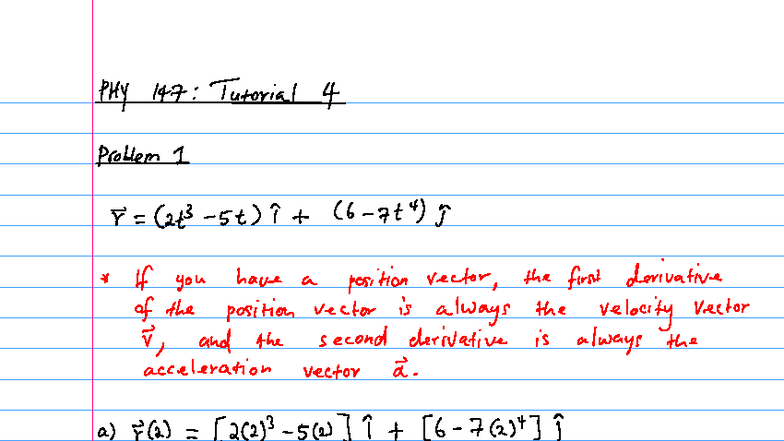 PHY 147: Tutorial 4
Problem 1
r⃗ = (2t³ - 5t) î + (6 - 7t⁴) ĵ
* If you have a position vector, the first derivative
of the position vector is always the velocity vector
v⃗, and the second derivative is always the
acceleration vector a⃗.
a) r⃗(2) = [2(2)³ - 5(2)] î + [6 - 7(2)⁴] ĵ